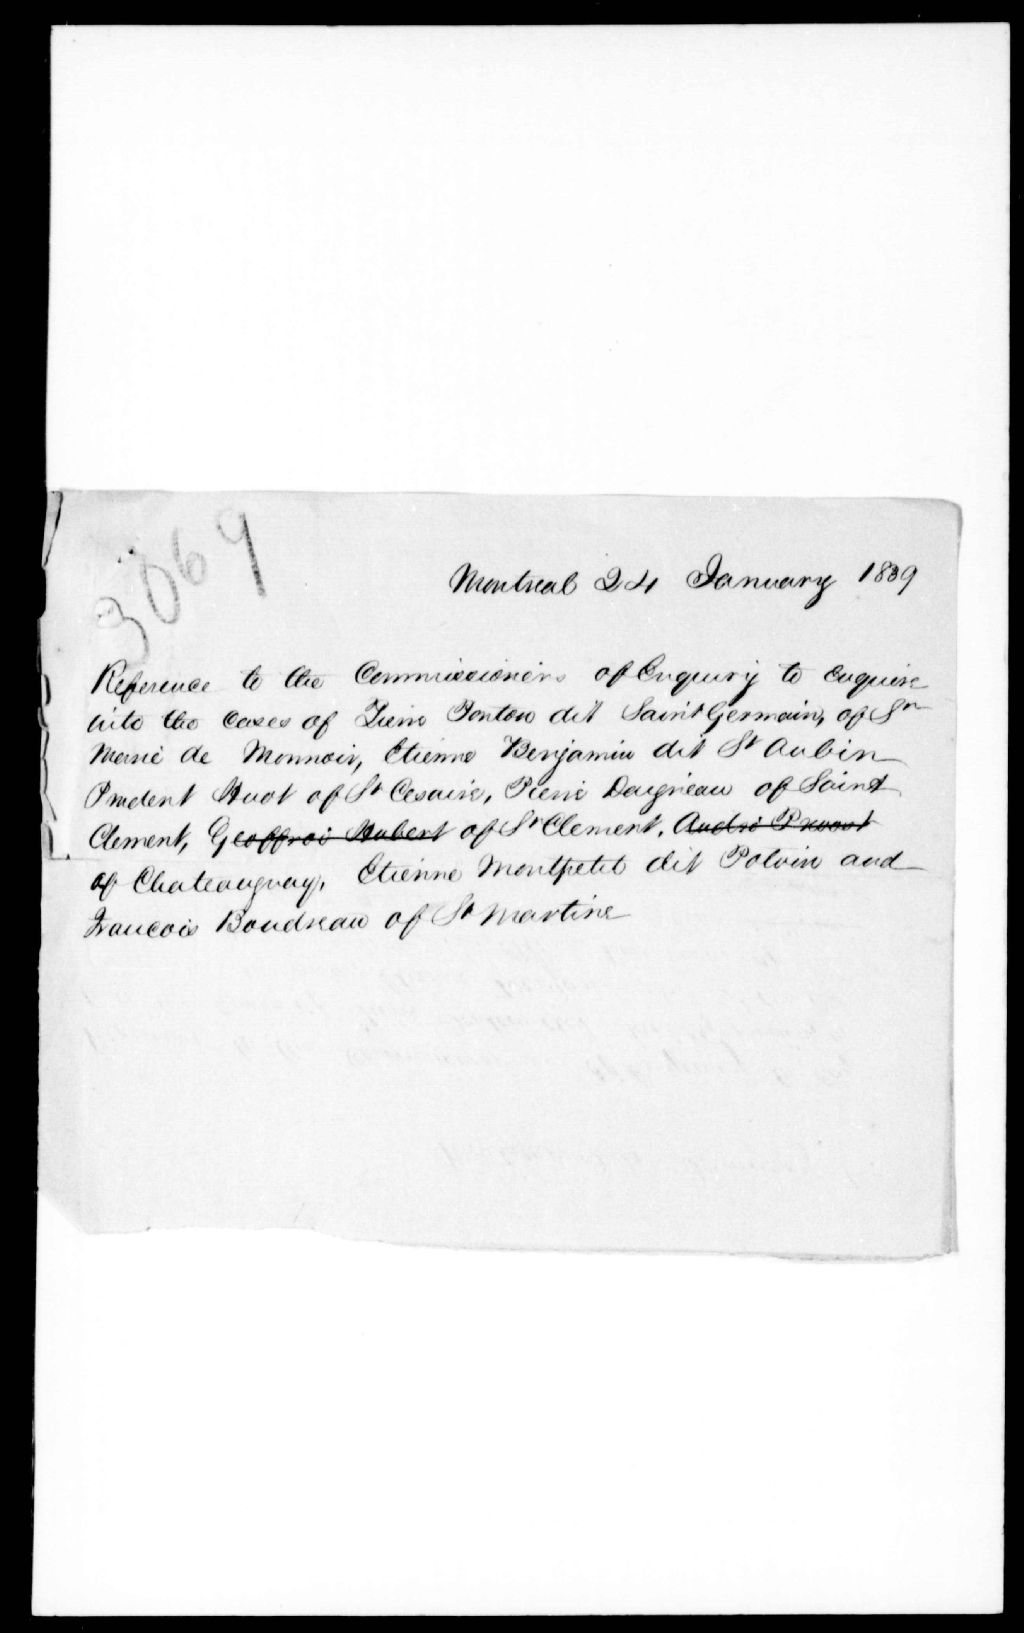 3069
Montreal 24 January 1839
Reference to the Commissioners of Enquiry to enquire
into the cases of Pierre Tonton dit Saint Germain, of Ste
Marie de Monnoir, Etienne Benjamin dit St Aubin
Prudent Huot of St Cesaire, Pierre Daigneau of Saint
Clement, Geoffroi Hubert of St Clement, André Prevost
of Chateauguay, Etienne Montpetit dit Potvin and
Francois Boudreau of St Martine